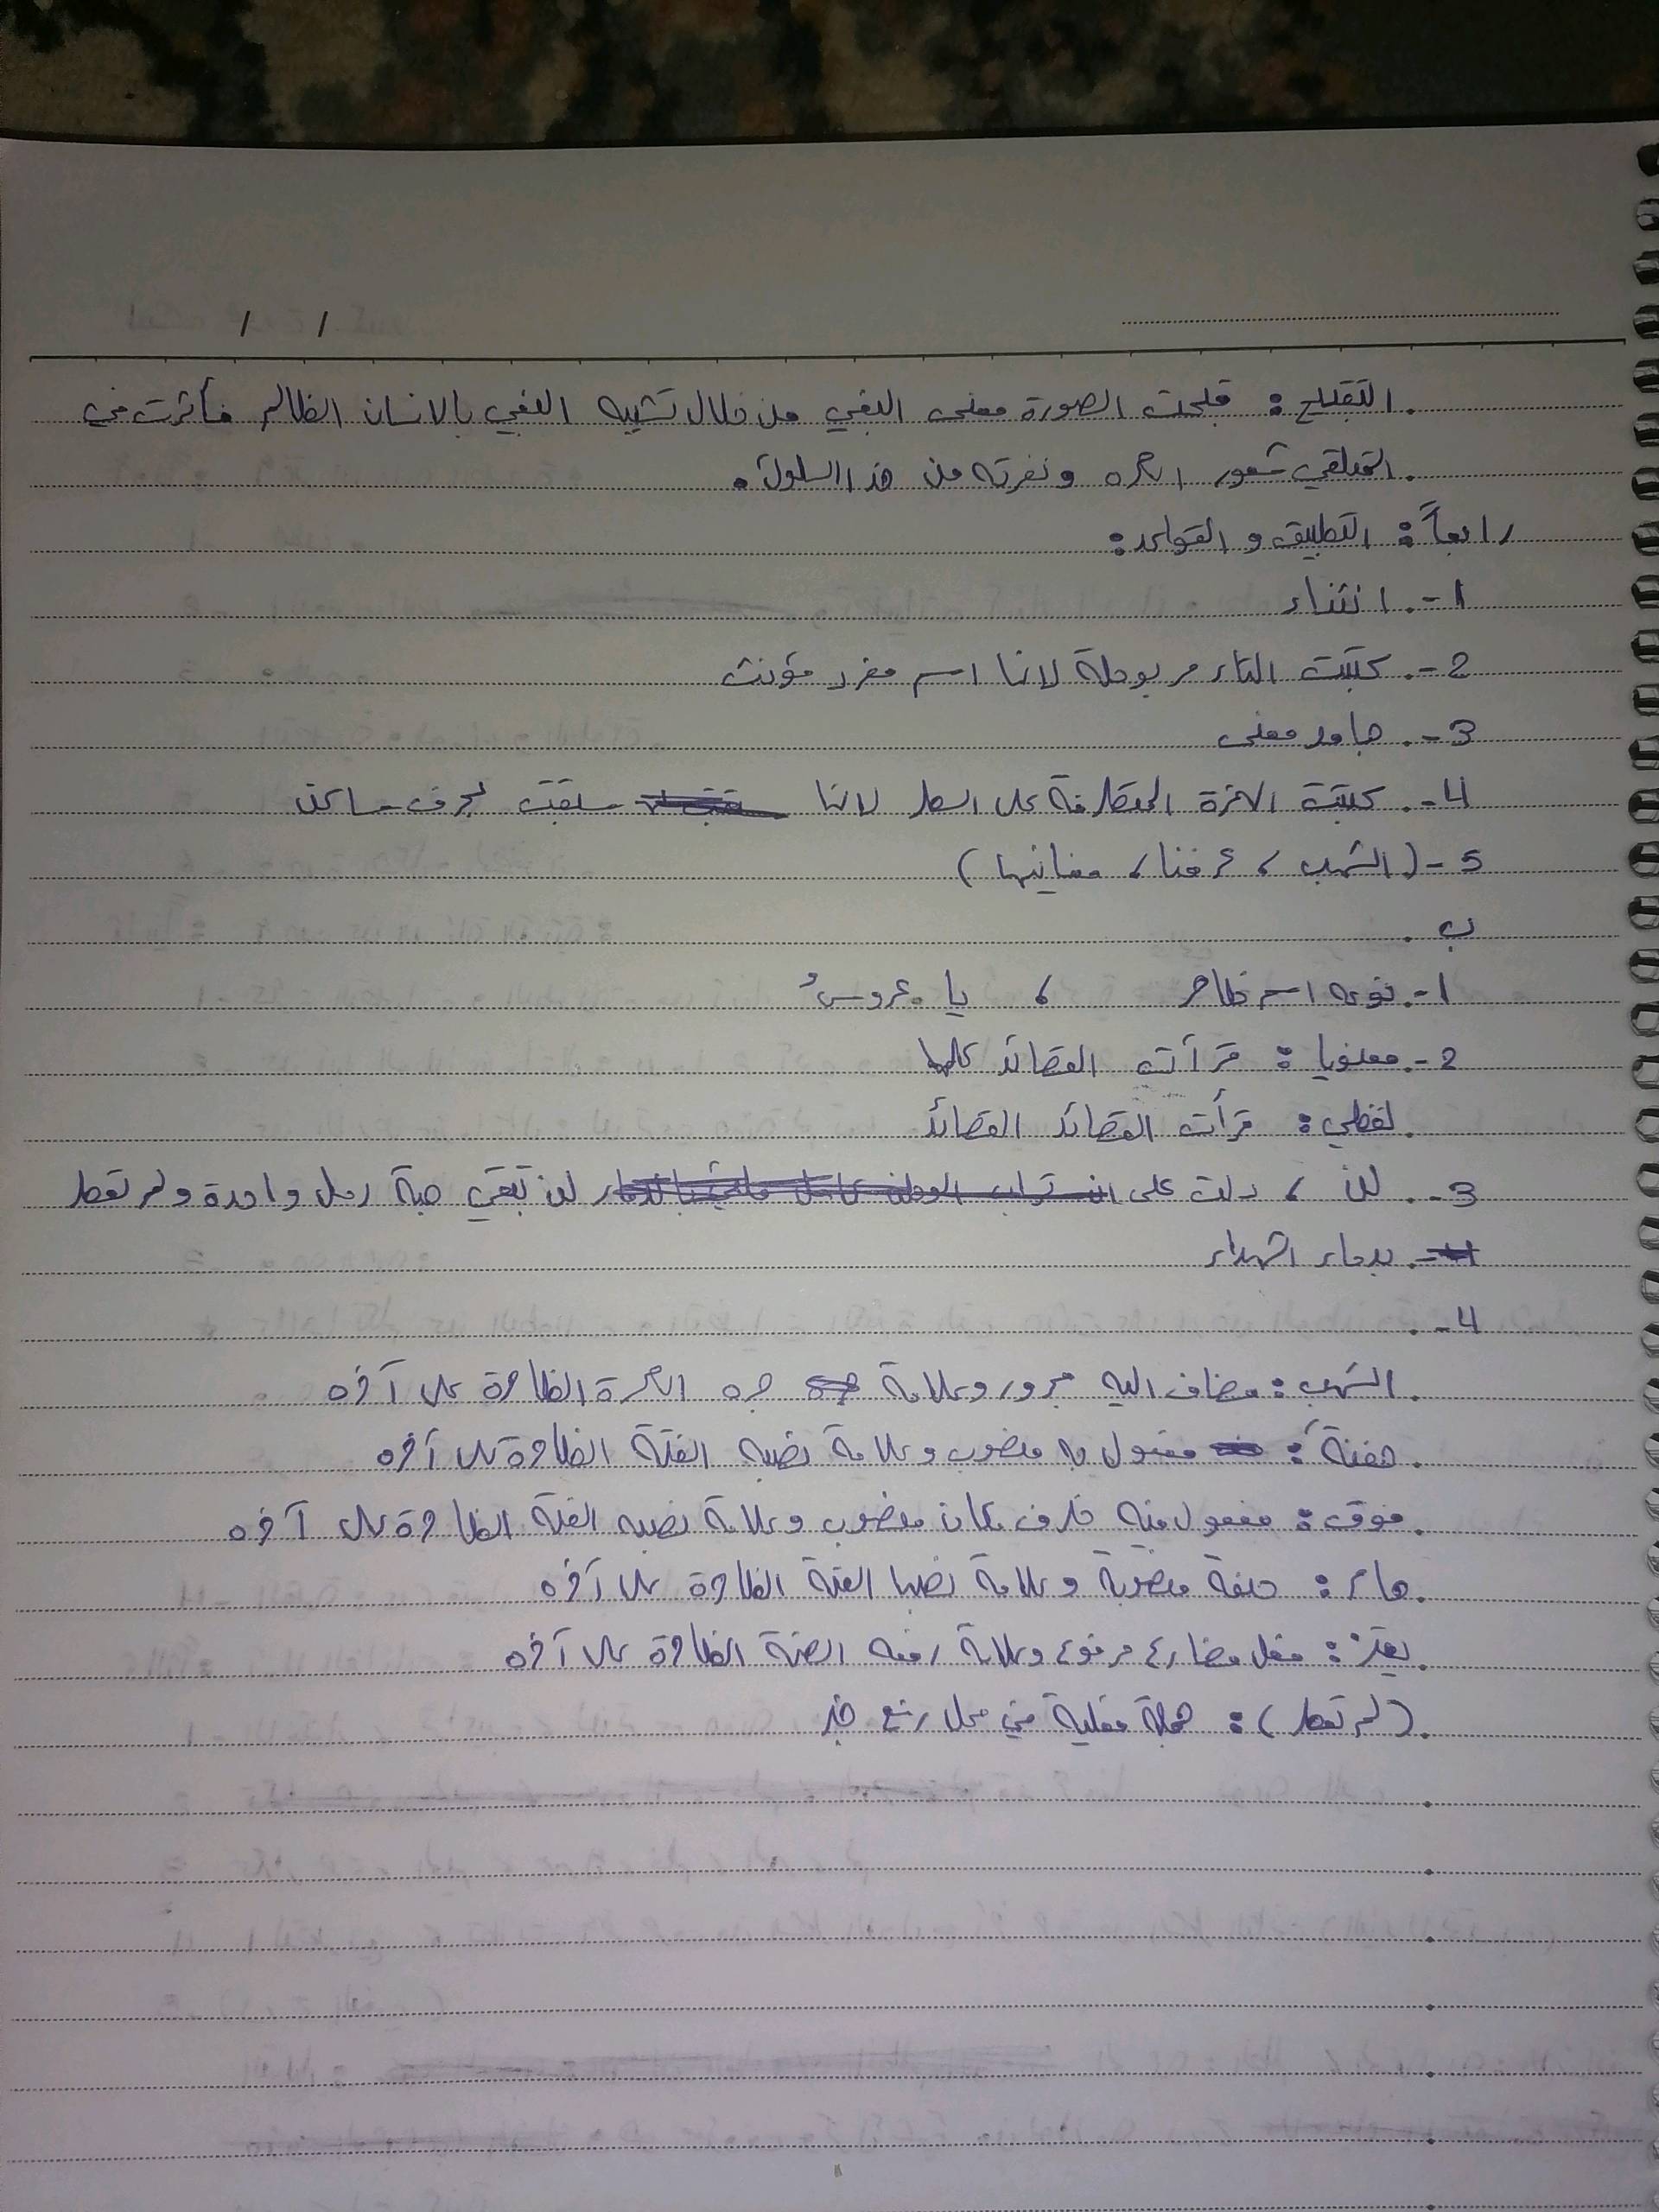 التقبيح : قبحت الصورة معنى البغي من خلال تشبيه البغي بالانسان الظالم فأثرت في
المتلقي شعور الكره ونفرته من هذا السلوك .
رابعاً : التطبيق و القواعد :
1 - انتداء
2 - كتبت التاء مربوطة لانها اسم مفرد مؤنث
3 - جامد معنى
4 - كتبت الهمزة المتطرفة على السطر لانها سبقت بحرف ساكن
5 - ( الشهب ، عرفنا ، مغانيها )
ب
1 - نوعه اسم ظاهر ، يا عروسُ
2 - معنويا : قرأت القصائد كلها
لفظي : قرأت القصائد القصائد
3 - لن ، دلت على لن تبقى حبة رمل واحدة ولم تعطر
بدماء الشهداء
4 -
الشهب : مضاف اليه مجرور وعلامة جره الكسرة الظاهرة على آخره
حفنةً : مفعول به منصوب وعلامة نصبه الفتحة الظاهرة على آخره
فوق : مفعول فيه ظرف مكان منصوب وعلامة نصبه الفتحة الظاهرة على آخره
صفة منصوبة وعلامة نصبها الفتحة الظاهرة على آخره
فعل مضارع مرفوع وعلامة رفعه الضمة الظاهرة على آخره
( لم تعطر ) : جملة فعلية في محل رفع خبر